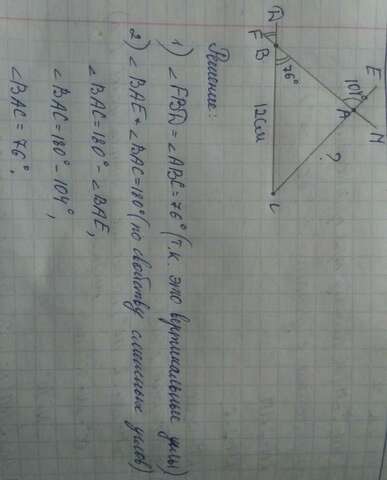 E
M
104°
A
?
D
F
B
76°
12см
C
Решение:
1) ∠FBD = ∠ABC = 76° (т.к. это вертикальные углы)
2) ∠BAE + ∠BAC = 180° (по свойству смежных углов)
∠BAC = 180° - ∠BAE,
∠BAC = 180° - 104°,
∠BAC = 76°,